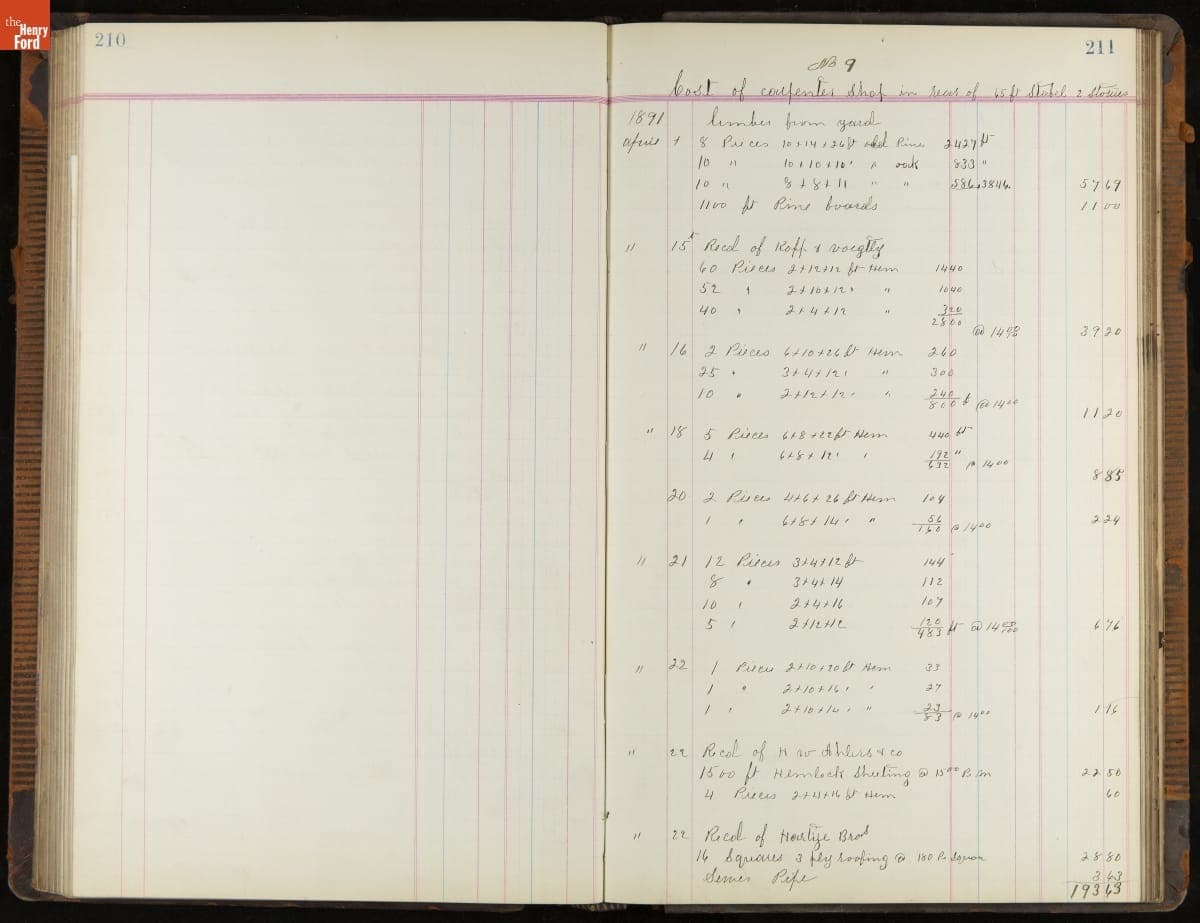 the Henry Ford
210
211
No 9
Cost of carpenter shop in rear of 65 ft Stabel 2 Stories
1891 lumber from yard
April 1 8 Pieces 10+14+26 ft old Pine 2427 ft
10 " 10+10+10' " oak 833 "
10 " 8+8+11 " " 586.3846. 57 69
1100 ft Pine boards 11 00
" 15 Recd of Kopp & Voegtly
60 Pieces 2+12+12 ft Hem 1440
52 " 2+10+12 " " 1040
40 " 2+4+12 " 320
2800 @ 14 00 39 20
" 16 2 Pieces 6+10+26 ft Hem 260
25 " 3+4+12 " " 300
10 " 2+12+12 " " 240
800 ft @ 14 00 11 20
" 18 5 Pieces 6+8+22 ft Hem 440 ft
4 " 6+8+12 " " 192 "
632 @ 14 00 8 85
20 2 Pieces 4+6+26 ft Hem 104
1 " 6+8+14 " " 56
160 @ 14 00 2 24
" 21 12 Pieces 3+4+12 ft 144
8 " 3+4+14 112
10 " 2+4+16 107
5 " 2+12+12 120
483 ft @ 14 00/100 6 76
" 22 1 Piece 2+10+20 ft Hem 33
1 " 2+10+16 " " 27
1 " 2+10+14 " " 23
83 @ 14 00 1 16
" 22 Recd of H W Ahlers & co
1500 ft Hemlock Sheeting @ 15 00 Per m 22 50
4 Pieces 2+4+16 ft Hem 60
" 22 Recd of Bros
16 Squares 3 ply roofing @ 180 Pr Square 28 80
Sewer Pipe 3 63
193 63